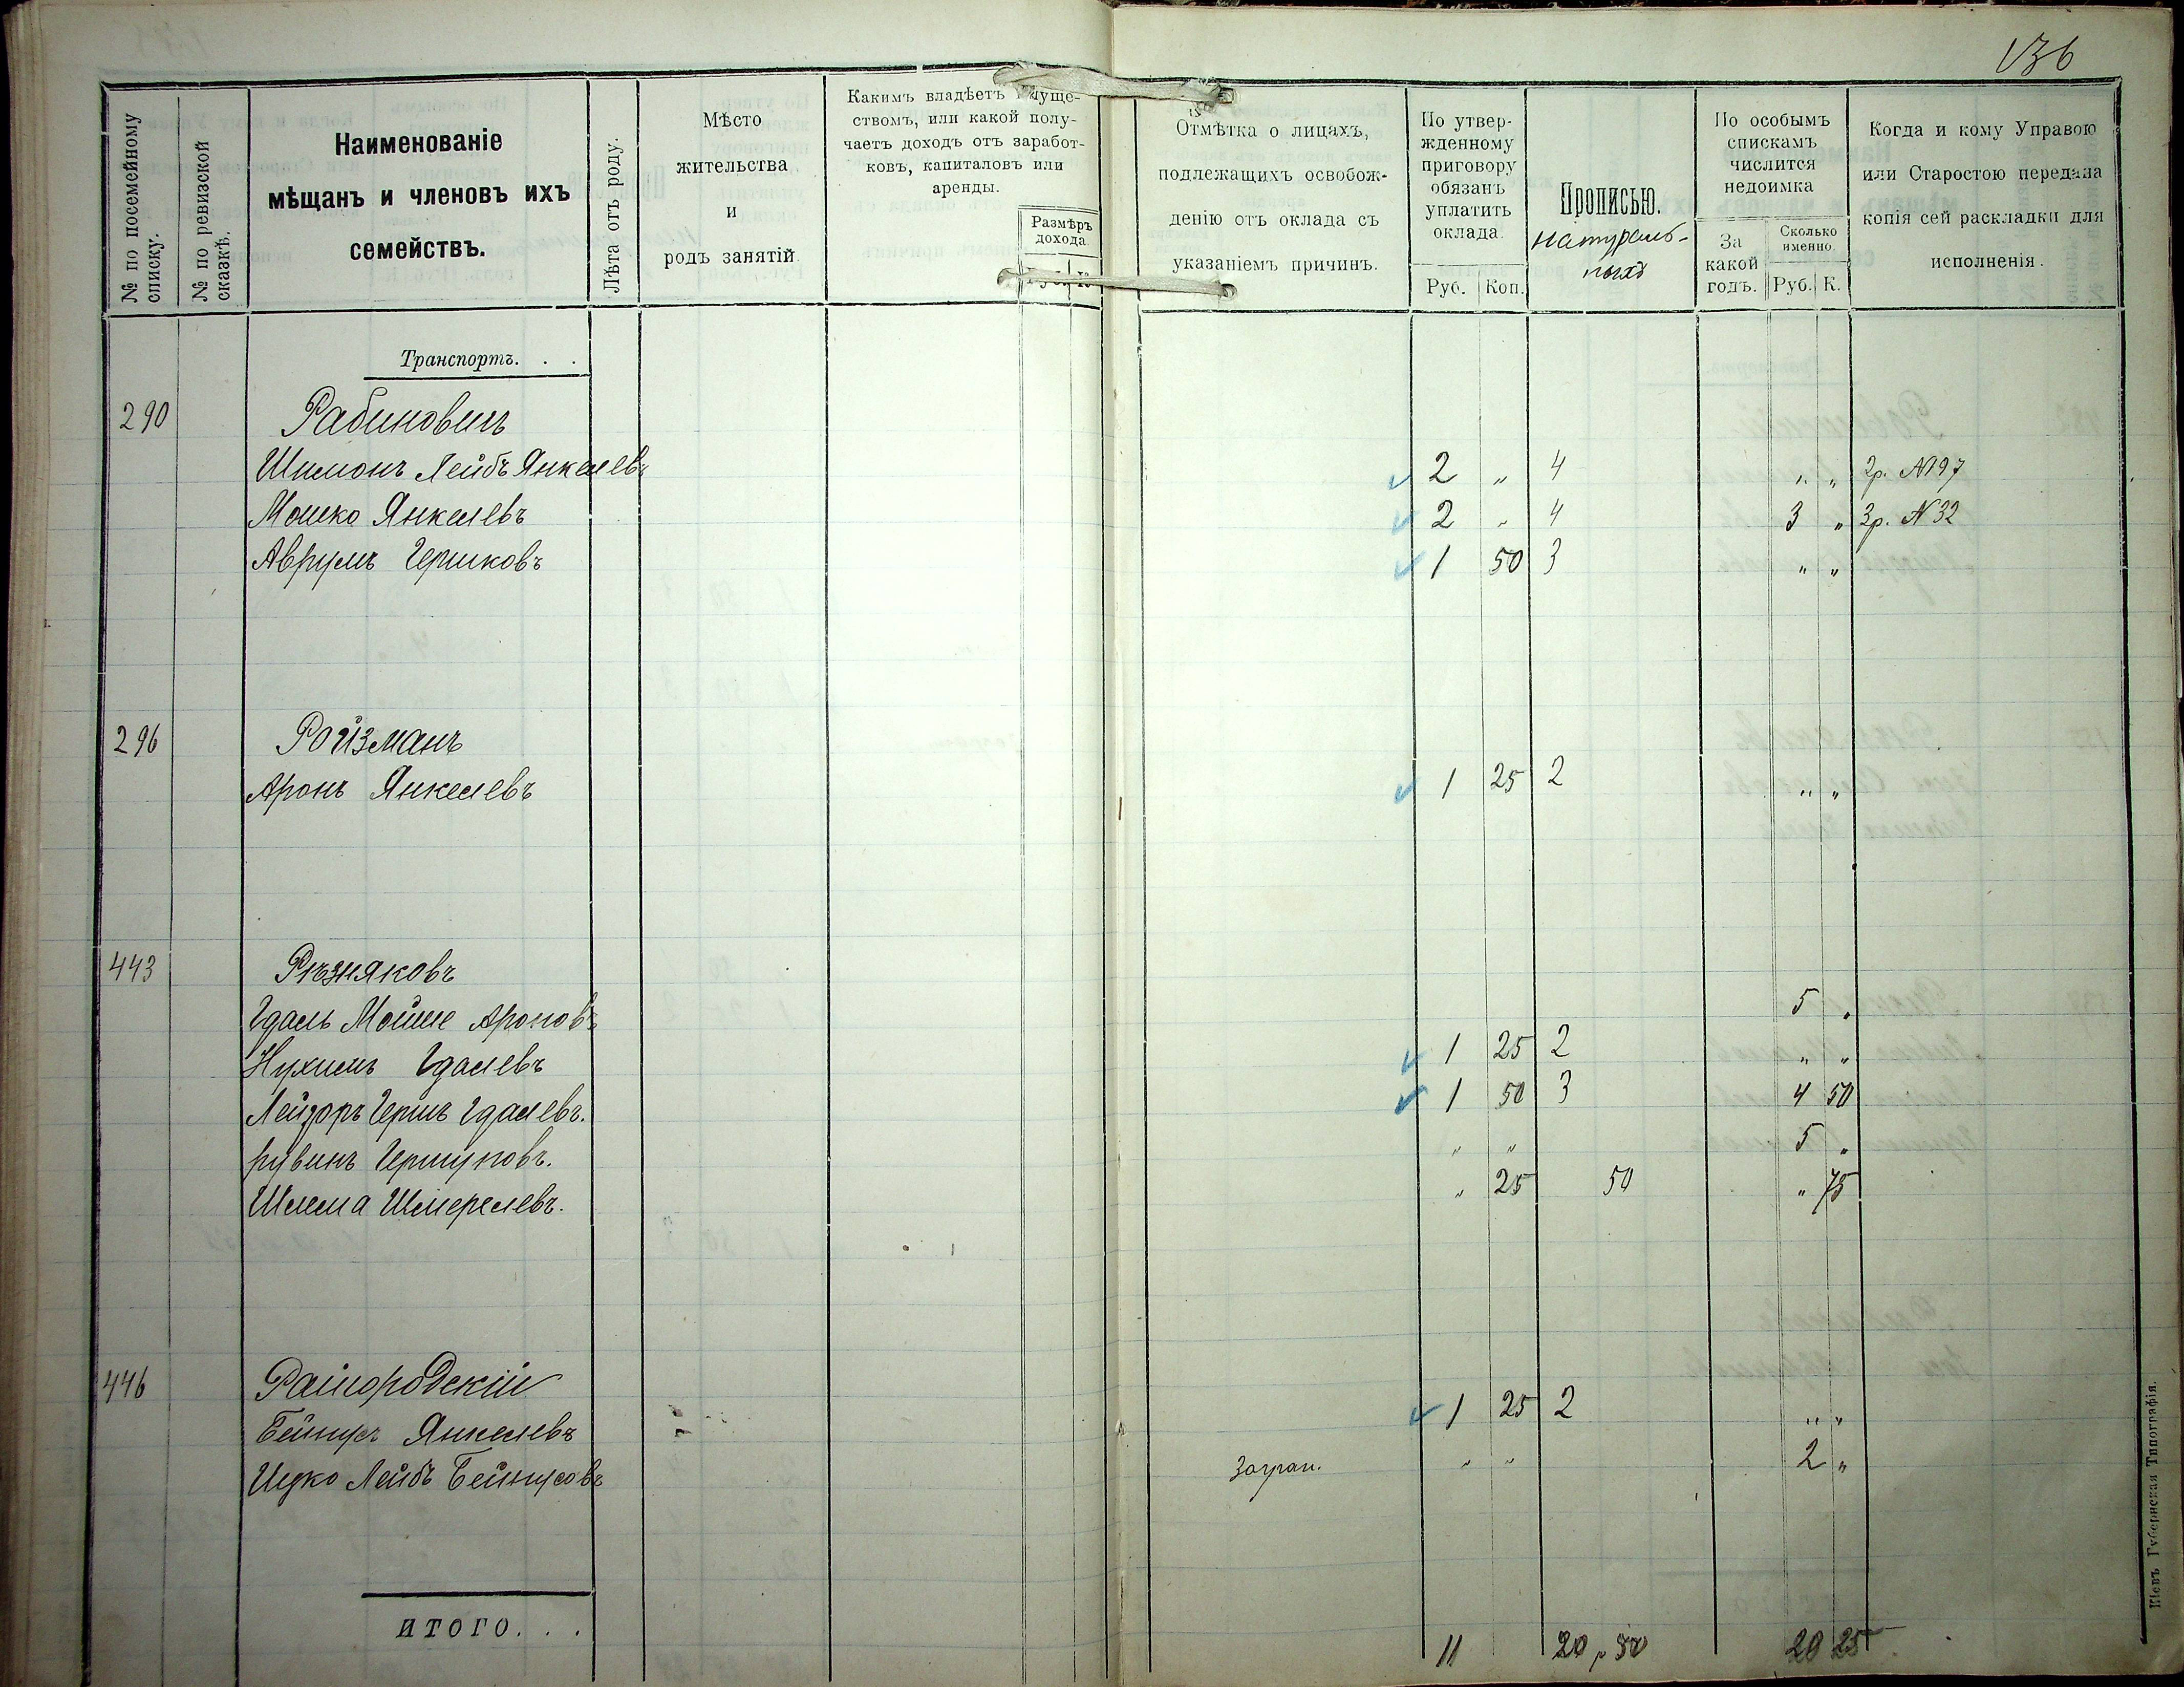 136
№ по посемейному списку.
№ по ревизской сказкѣ.
Наименованіе
мѣщанъ и членовъ ихъ
семействъ.
Лѣта отъ роду.
Мѣсто
жительства
и
родъ занятій
Какимъ владѣетъ имуще-
ствомъ, или какой полу-
чаетъ доходъ отъ заработ-
ковъ, капиталовъ или
аренды.
Размѣръ
дохода.
Отмѣтка о лицахъ,
подлежащихъ освобож-
денію отъ оклада съ
указаніемъ причинъ.
По утвер-
жденному
приговору
обязанъ
уплатить
оклада.
Руб. Коп.
Прописью.
натураль-
ныхъ
По особымъ
спискамъ
числится
недоимка
За
какой
годъ.
Сколько
именно.
Руб. К.
Когда и кому Управою
или Старостою передана
копія сей раскладки для
исполненія.
Транспортъ. . .
290 Рабиновичъ
Шимонъ Лейбъ Янкелевъ 2 „ 4 „ „ 2р. №197
Мошко Янкелевъ 2 „ 4 3 „ 3р. №32
Аврумъ Гершковъ 1 50 3 „ „
296 Ройзманъ
Аронъ Янкелевъ 1 25 2 „ „
443 Рѣзняковъ
Гдаль Мойше Ароновъ 5 „
Нухимъ Гдалевъ 1 25 2 „ „
Лейзоръ Гершъ Гдалевъ. 1 50 3 4 50
Рувинъ Гершуновъ. „ „ 5 „
Шлема Шмерелевъ. „ 25 50 „ 75
446 Райгородскій
Бейнусъ Янкелевъ 1 25 2 „ „
Ицко Лейбъ Бейнусовъ Загран. „ „ 2 „
ИТОГО. . . 11 20 р 50 20 25
Кіевъ Губернская Типографія.